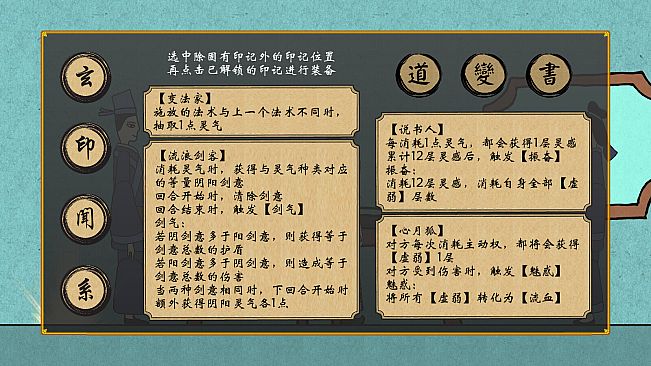 选中除固有印记外的印记位置
再点击已解锁的印记进行装备
玄
印
闻
系
道
變
書
【变法家】
施放的法术与上一个法术不同时，
抽取1点灵气
【流浪剑客】
消耗灵气时，获得与灵气种类对应
的等量阴阳剑意
回合开始时，清除剑意
回合结束时，触发【剑气】
剑气：
若阴剑意多于阳剑意，则获得等于
剑意总数的护盾
若阳剑意多于阴剑意，则造成等于
剑意总数的伤害
当两种剑意相同时，下回合开始时
额外获得阴阳灵气各1点
【说书人】
每消耗1点灵气，都会获得1层灵感
累计12层灵感后，触发【振奋】
振奋：
消耗12层灵感，消耗自身全部【虚
弱】层数
【心月狐】
对方每次消耗主动权，都将会获得
【虚弱】1层
对方受到伤害时，触发【魅惑】
魅惑：
将所有【虚弱】转化为【流血】